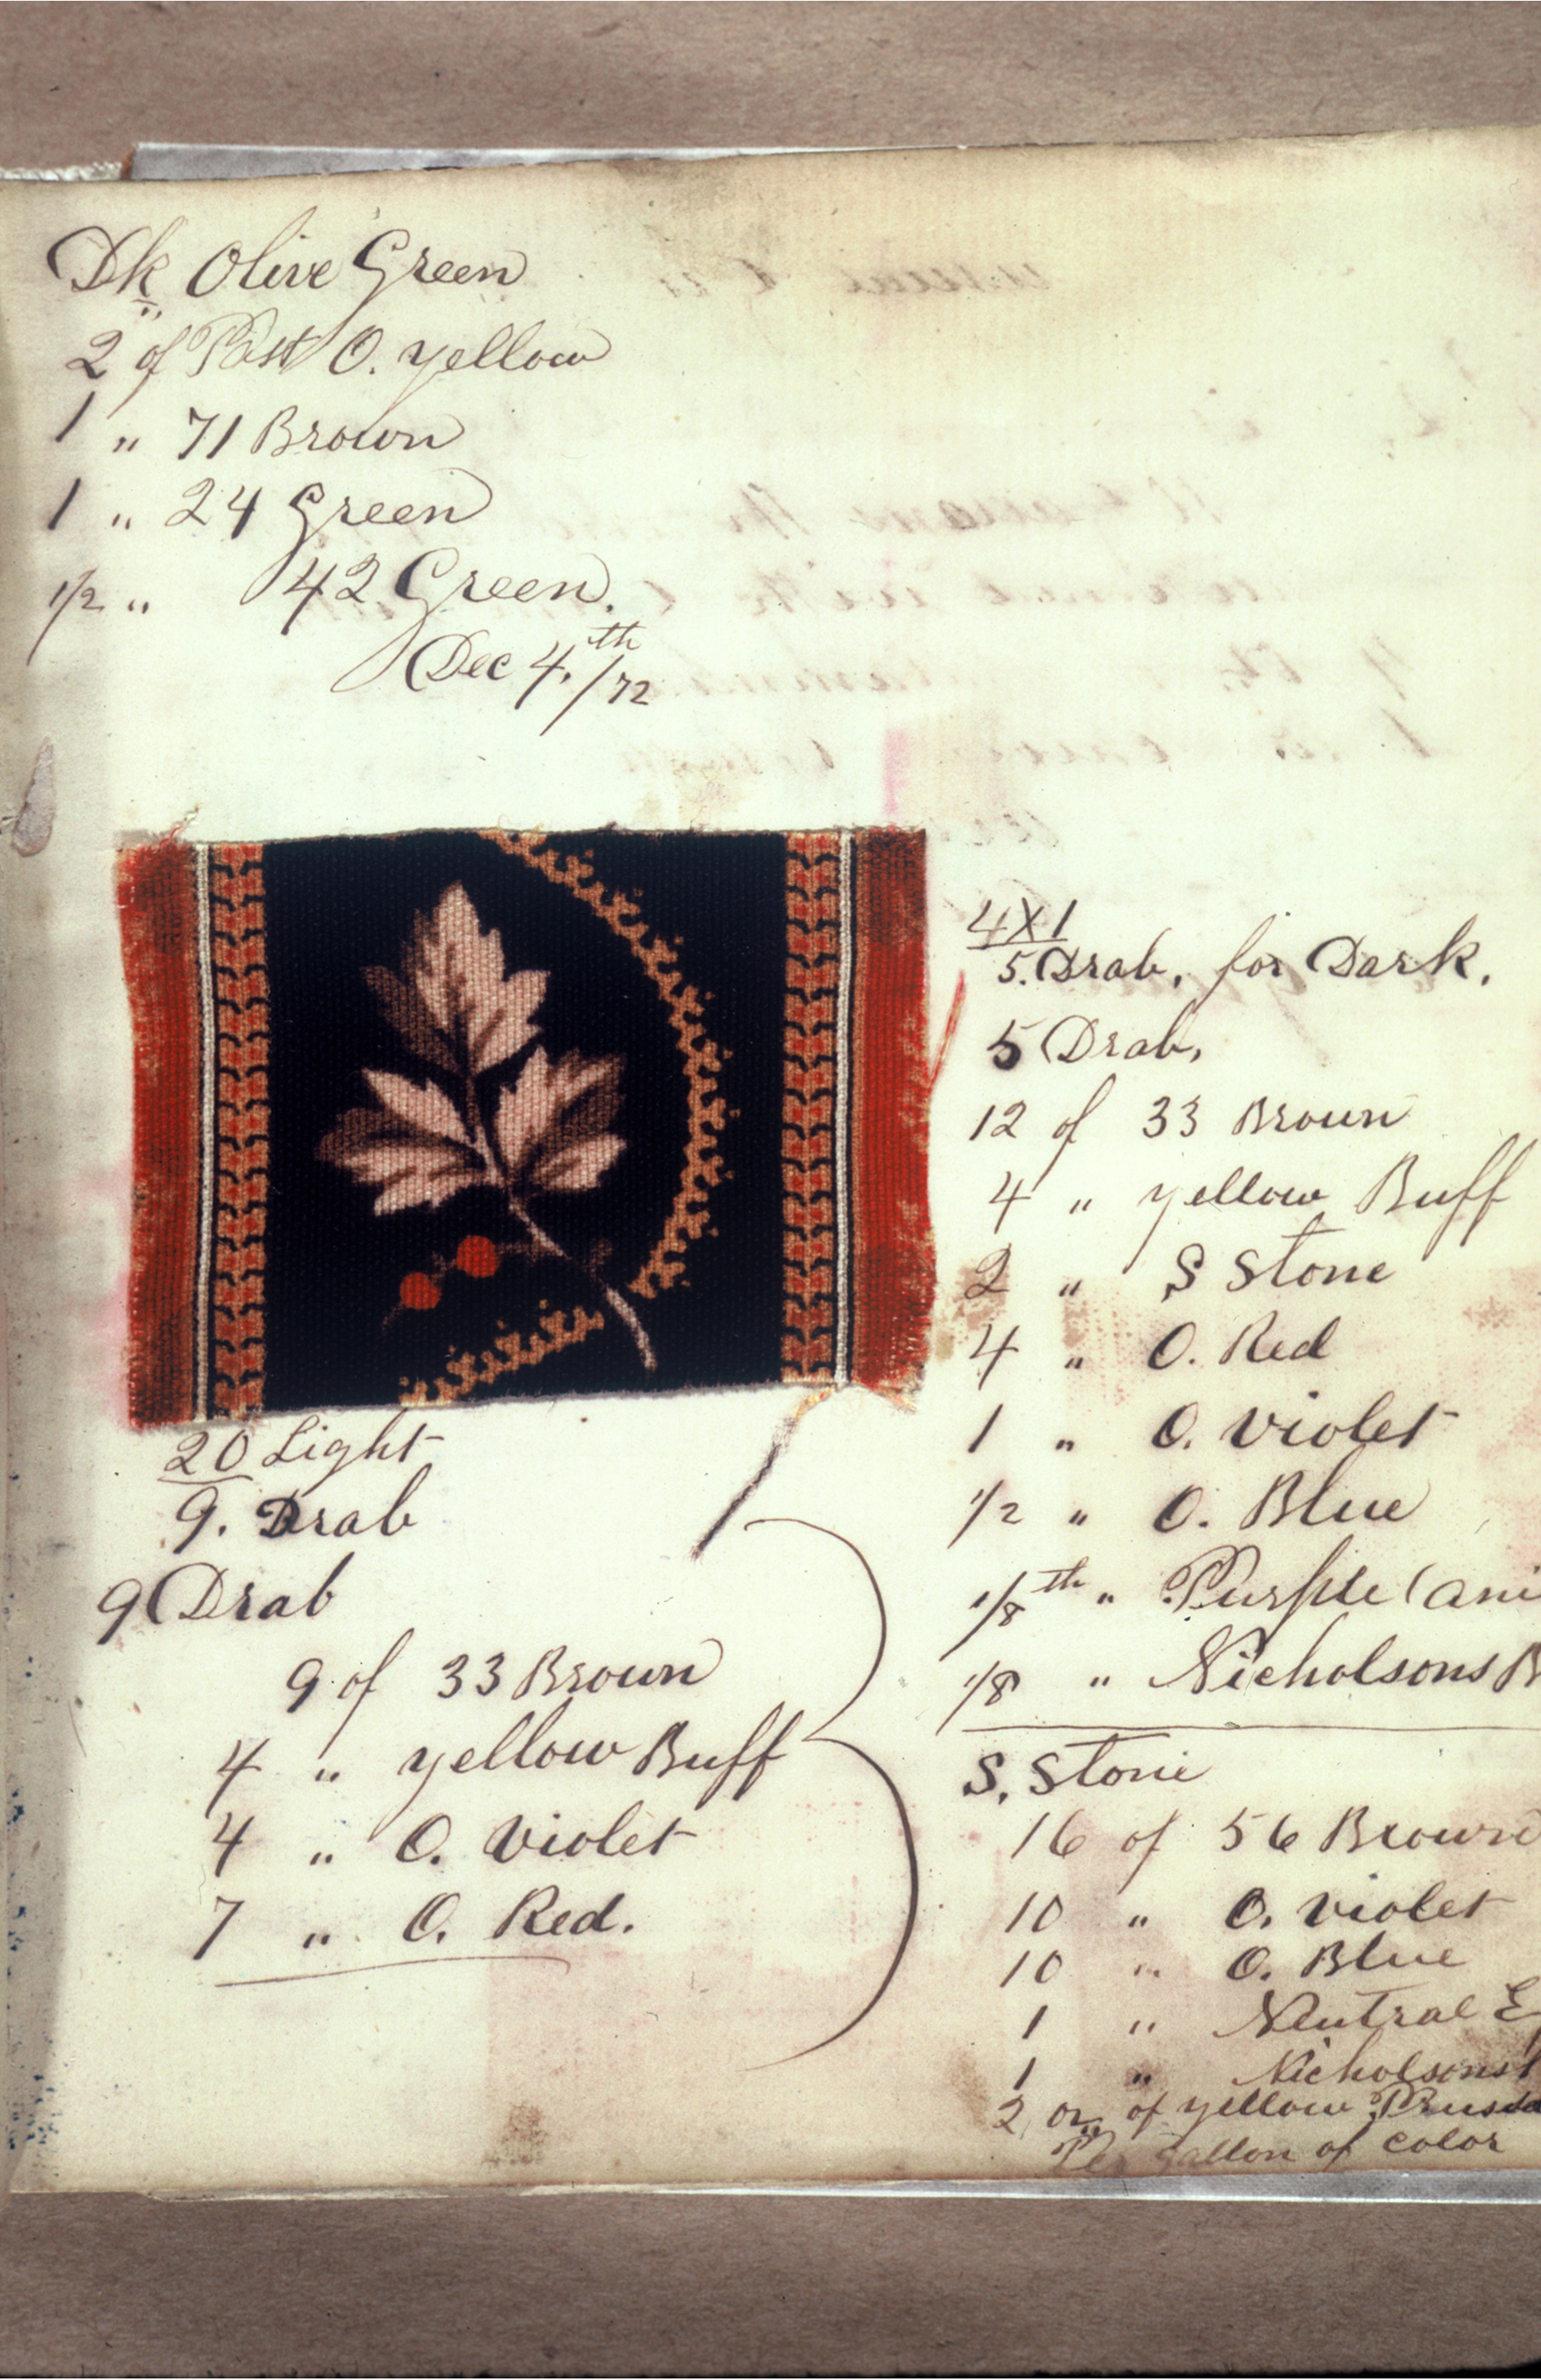 Dk Olive Green
2 of Past O. yellow
1 " 71 Brown
1 " 24 Green
1/2 " 42 Green.
Dec 4.th/72
20 Light
9. Drab
9 Drab
9 of 33 Brown
4 " yellow Buff
4 " O. violet
7 " O. Red.
4X1
5. Drab, for Dark.
5 Drab,
12 of 33 Brown
4 " yellow Buff
2 " S Stone
4 " O. Red
1 " O. violet
1/2 " O. Blue
1/8th " Purple (ani
1/8 " Nicholsons B
S. Stone
16 of 56 Brown
10 " O. violet
10 " O. Blue
1 " Neutral E
1 " Nicholsons
2 oz of yellow Prussia
Per gallon of color